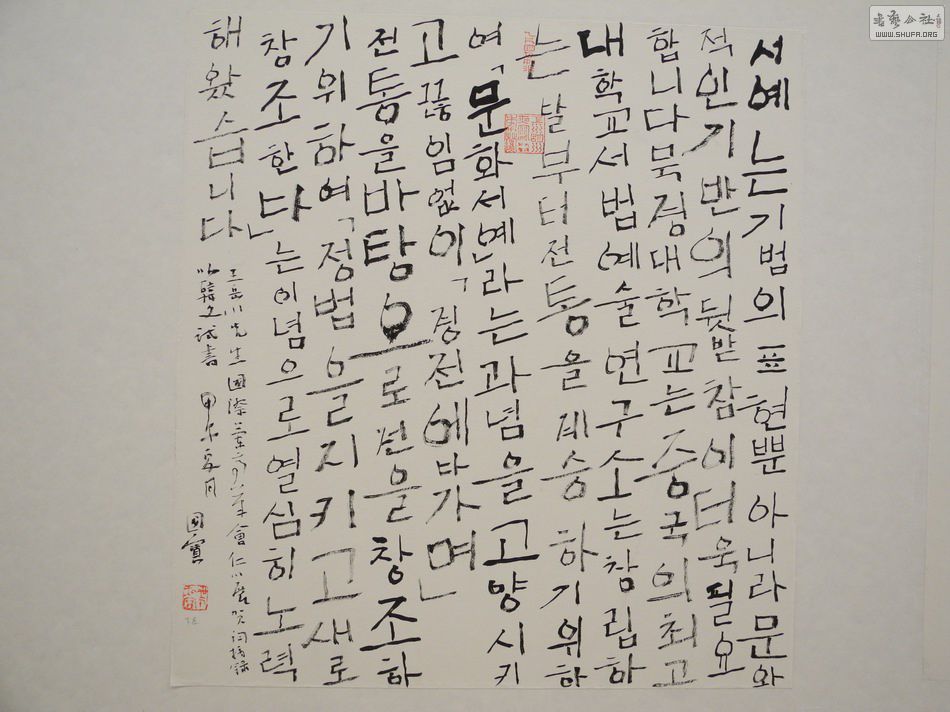 서예는기범의표현뿐아니라문화
적인기반의뒷받참이더욱필요
합니다북경대학교는중국의최고
대학교서법예술연구소는참립하
는발부터전통을계승하기위하
여,문화서예라는과념을고양시키
고끊임없이,경전에다가면
전통을바탕으로 창조하
기위하여,정법을지키고새로
창조한다는이념으로열심히노력
해왔습니다
王岳川先生國際 會仁川展賀詞摘錄
以韓文試書 甲午夏月 國寶
書藝公社
WWW.SHUFA.ORG